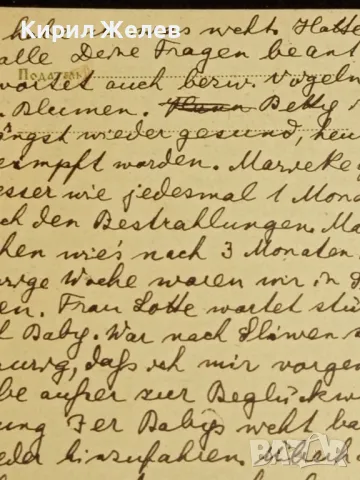 Кирил Желев
weht. Hatte
alle Deine Fragen beant
Податель
wortet auch bezw. Vögeln
Blumen. Betty
längst wieder gesund, heu
eimpft worden. Marneke
esser wie jedesmal 1 Mona
ch den Bestrahlungen. Ma
hen wie's nach 3 Monaten
orige Woche waren wir in d
en. Frau Lotte wartet stü
Baby. War nach
urig, daß ich mir vorgen
be außer zur Beglückw
ung Ier Babys weht ba
der hinzufahren.
BAZAR